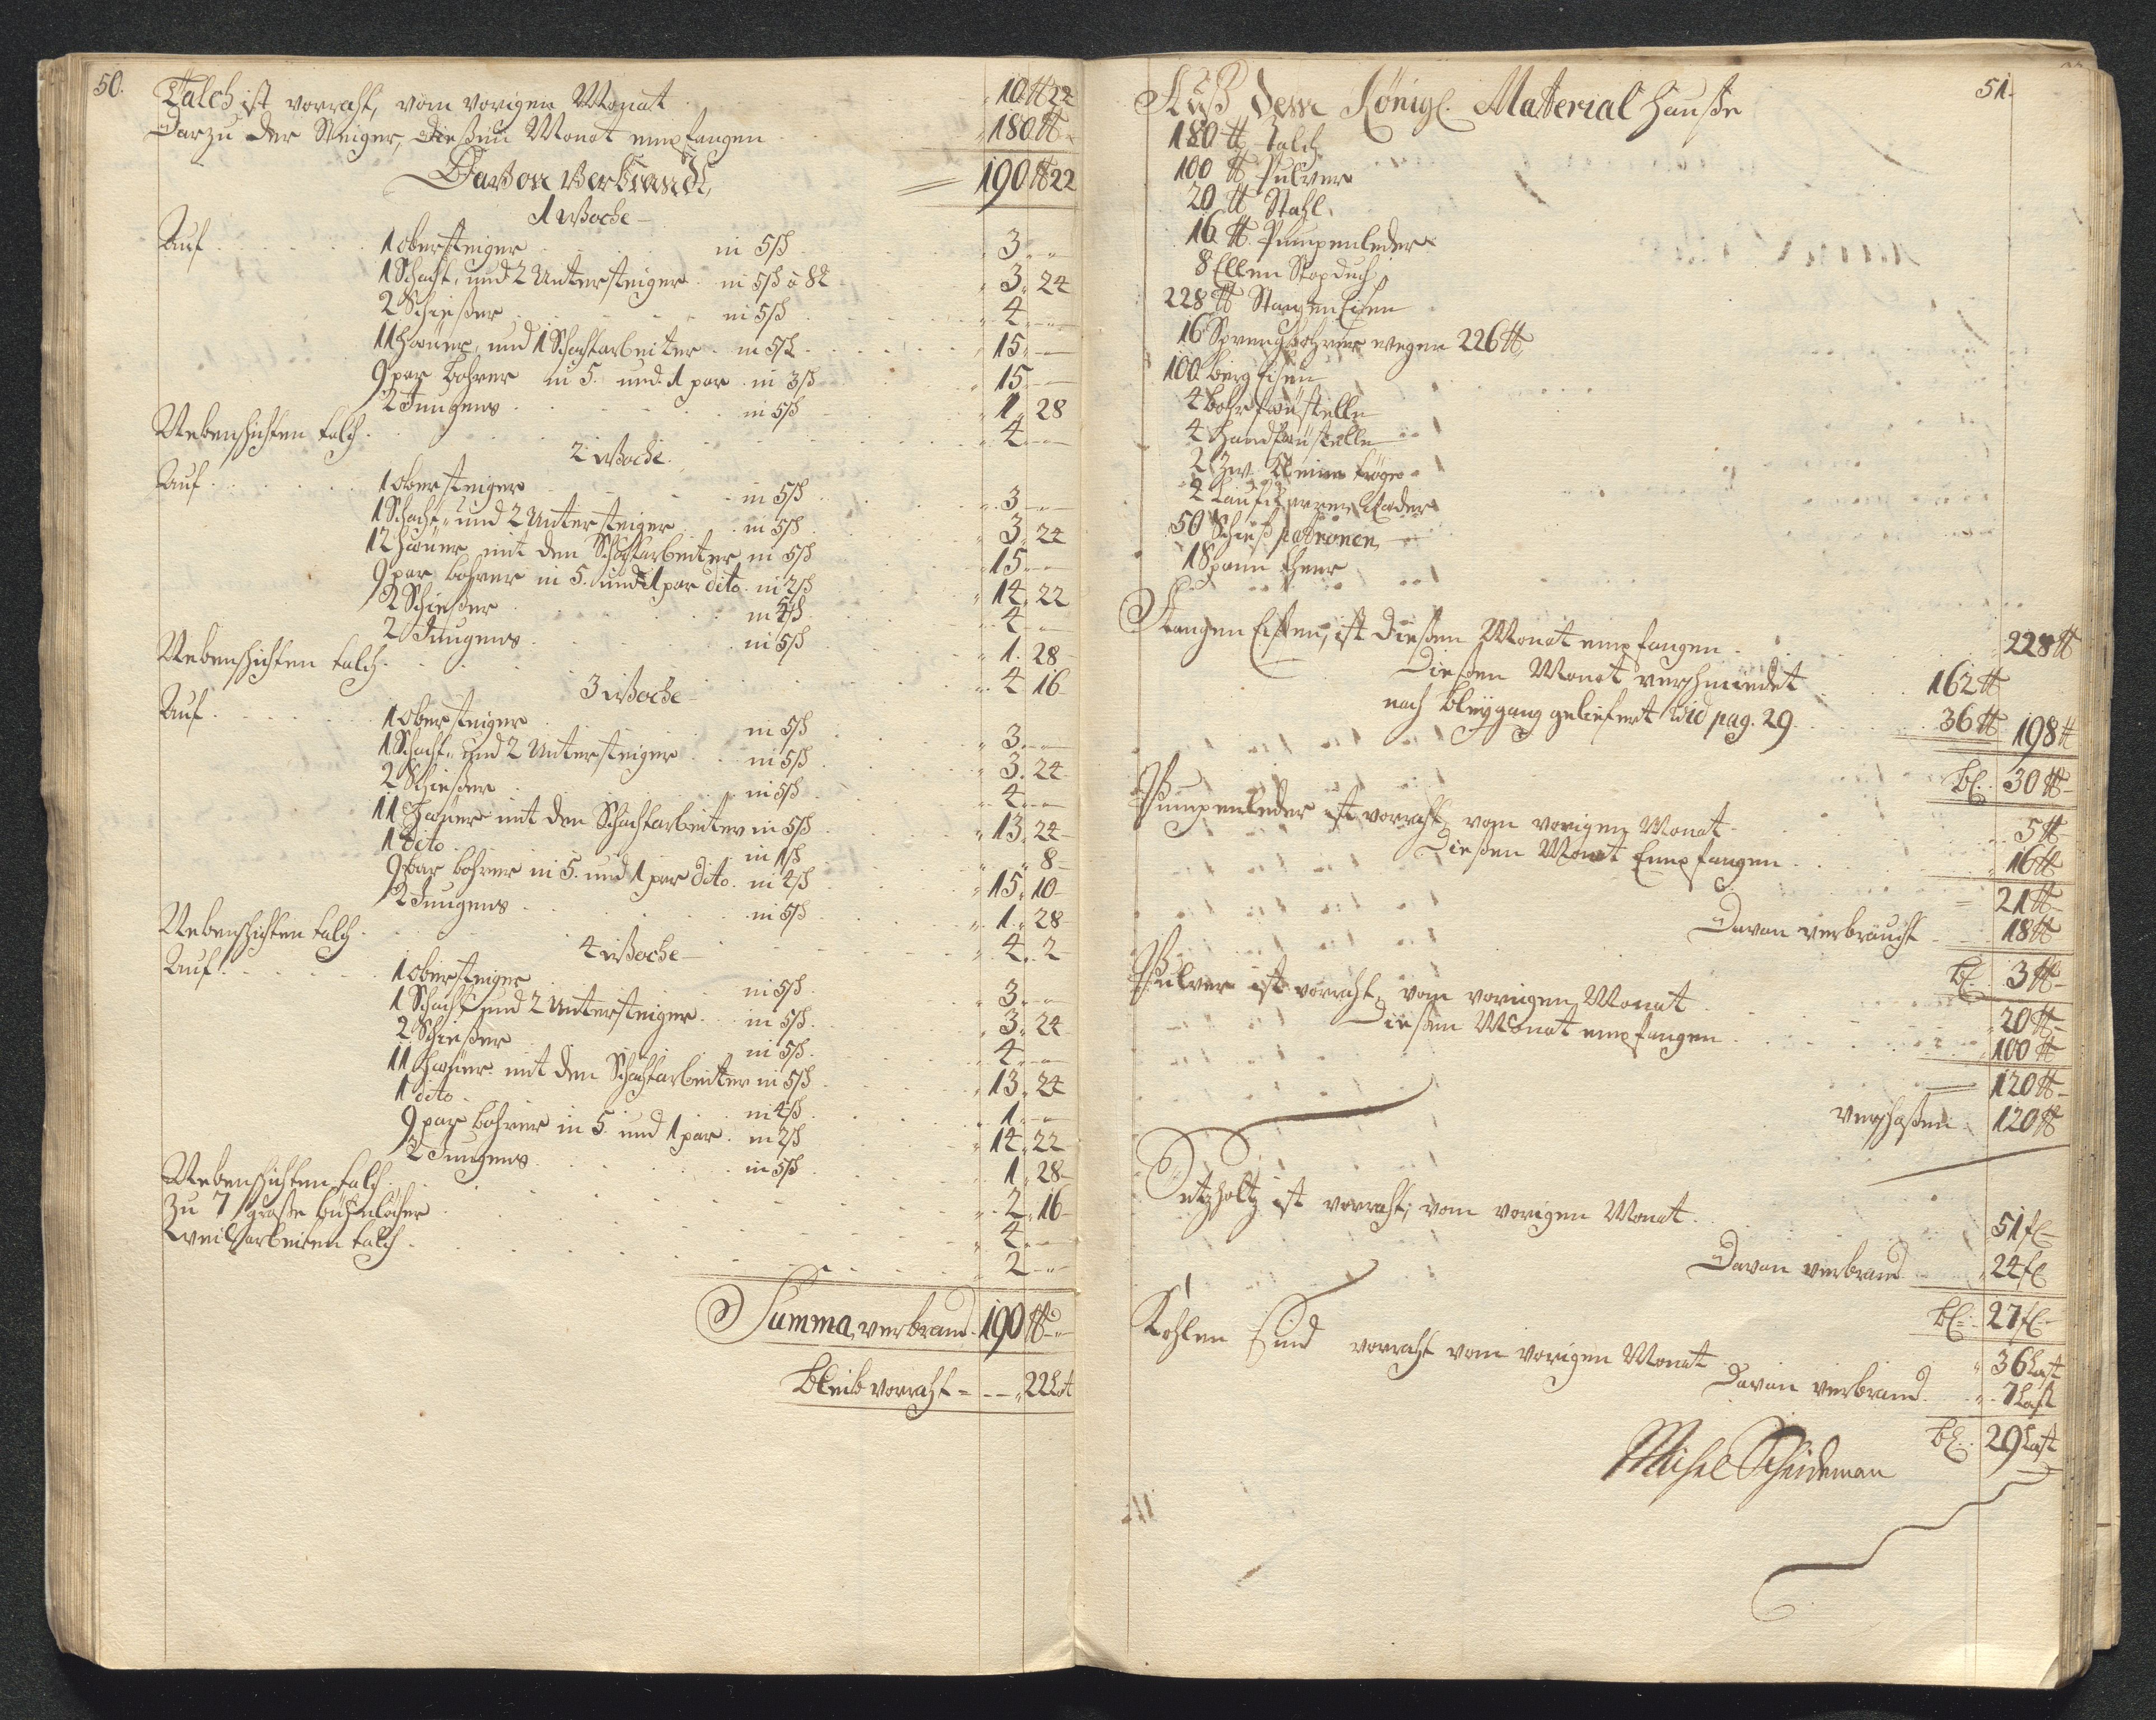 50.
Talch ist vorraht, vom vorigen Monat 10 ℔ 22
Darzu der Steiger, dießen Monat empfangen 180 ℔ -
Davon Verbrandt, 190 ℔ 22
1 Woche
Auf 1 obersteiger in 5 ß 3 -
1 Schacht, und 2 Untersteiger in 5 ß à 8 lt 3. 24
2 Schießer in 5 ß 4 -
11 Häuer, und 1 Schachtarbeiter in 5 ß 15 -
9 par bohrer in 5. und 1 par in 3 ß 15 -
2 Jungens in 5 ß 1. 28
Nebenschichten talch 4 -
2 Woche
Auf 1 obersteiger in 5 ß 3 -
1 Schacht, und 2 Untersteiger in 5 ß 3. 24
12 Häuer mit den Schachtarbeiter in 5 ß 15 -
9 par bohrer in 5. und 1 par dito in 2 ß 14. 22
2 Schießer in 5 ß 4 -
2 Jungens in 5 ß 1. 28
Nebenschichten talch 4 16
3 Woche
Auf 1 obersteiger in 5 ß 3. -
1 Schacht, und 2 Untersteiger in 5 ß 3. 24
2 Schießer in 5 ß 4 -
11 Häuer mit den Schachtarbeiter in 5 ß 13. 24
1 dito in 1 ß 8
9 par bohrer in 5. und 1 par dito in 4 ß 15. 10
2 Jungens in 5 ß 1. 28
Nebenschichten talch 4. 2
4 Woche
Auf 1 obersteiger in 5 ß 3. -
1 Schacht und 2 Untersteiger in 5 ß 3. 24
2 Schießer in 5 ß 4 -
11 Häuer mit den Schachtarbeiter in 5 ß 13. 24
1 dito in 4 ß 1. -
9 par bohrer in 5 und 1 par in 2 ß 14. 22
2 Jungens in 5 ß 1. 28
Nebenschichten talch 2. 16
Zu 7 große 4 -
Weilarbeiten talch 2 -
Summa, verbrand 190 ℔ -
Bleib vorraht - 22 Lot
51.
Auß dem Königl. Material Hauße
180 ℔ Talch
100 ℔ Pulver
20 ℔ Stahl
16 ℔ Pumpenleder
8 Ellen Stopduch
228 ℔ Stangen Eisen
16 Sprengbohrer wegen 226 ℔
100 berg Eisen
4 bohrfäustelle
4 Handfäustelle
2 Kleine tröge
2 Laufkarren Räder
50 Schieß patronen
1 Spann theer
Stangen Eisen, ist dießen Monat empfangen 228 ℔
Dießen Monat verschmiedet 162 ℔
nach Bleygang geliefert vid pag. 29. 36 ℔ 198 ℔
bl. 30 ℔
Pumpenleder ist vorraht, vom vorigen Monat 5 ℔
Dießen Monat Empfangen 16 ℔
= 21 ℔
Davon verbraucht 18 ℔
bl. 3 ℔
Pulver ist vorraht, vom vorigen Monat 20 ℔
Dießen Monat empfangen 100 ℔
= 120 ℔
verschoßen 120 ℔
Setzholtz ist vorraht; vom vorigen Monat 51 fl
Davon verbrand 24 fl
bl. 27 fl
Kohlen Sind vorraht vom vorigen Monat 36 Last
Davon verbrand 7 Last
bl. 29 Last
Michel Scheideman